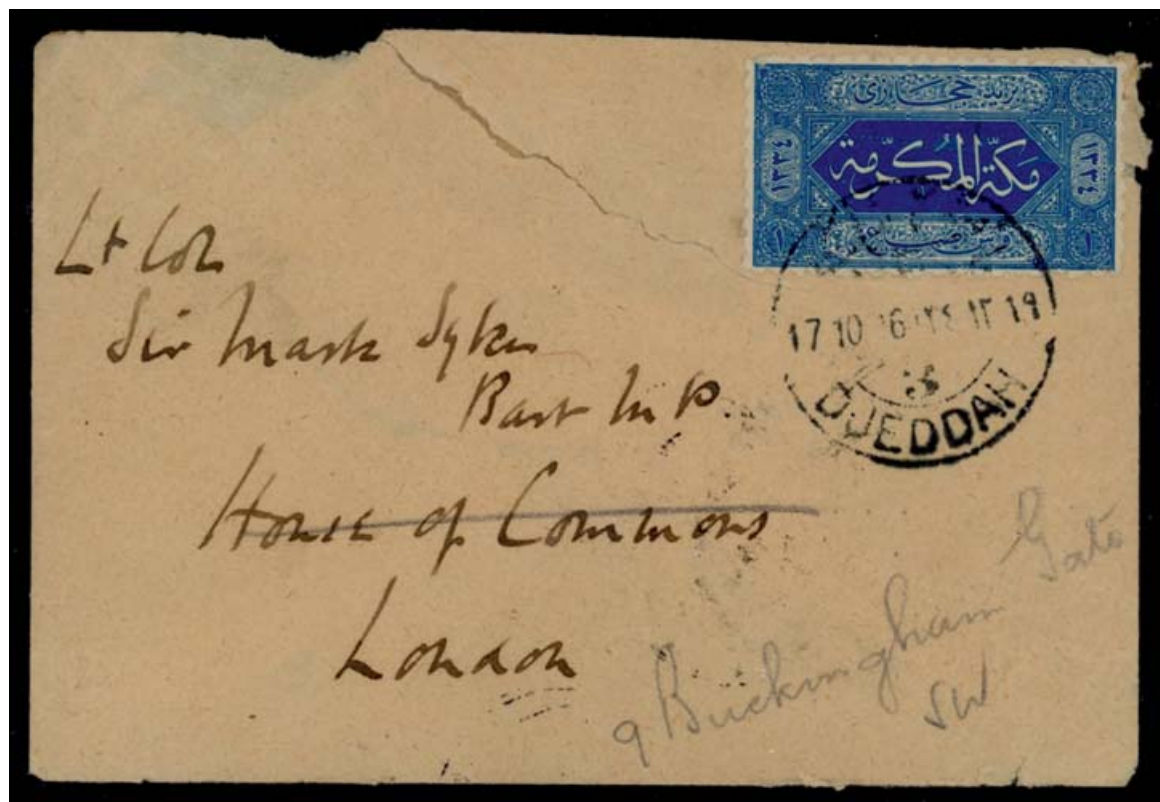 بريد حجازى
١٣٣٤ مكّة المكرّمة ١٣٣٤
١ قرش صاغ ١
17 10 16
DJEDDAH
Lt Col
Sir Mark Sykes
Bart M.P.
House of Commons
London
9 Buckingham Gate
SW